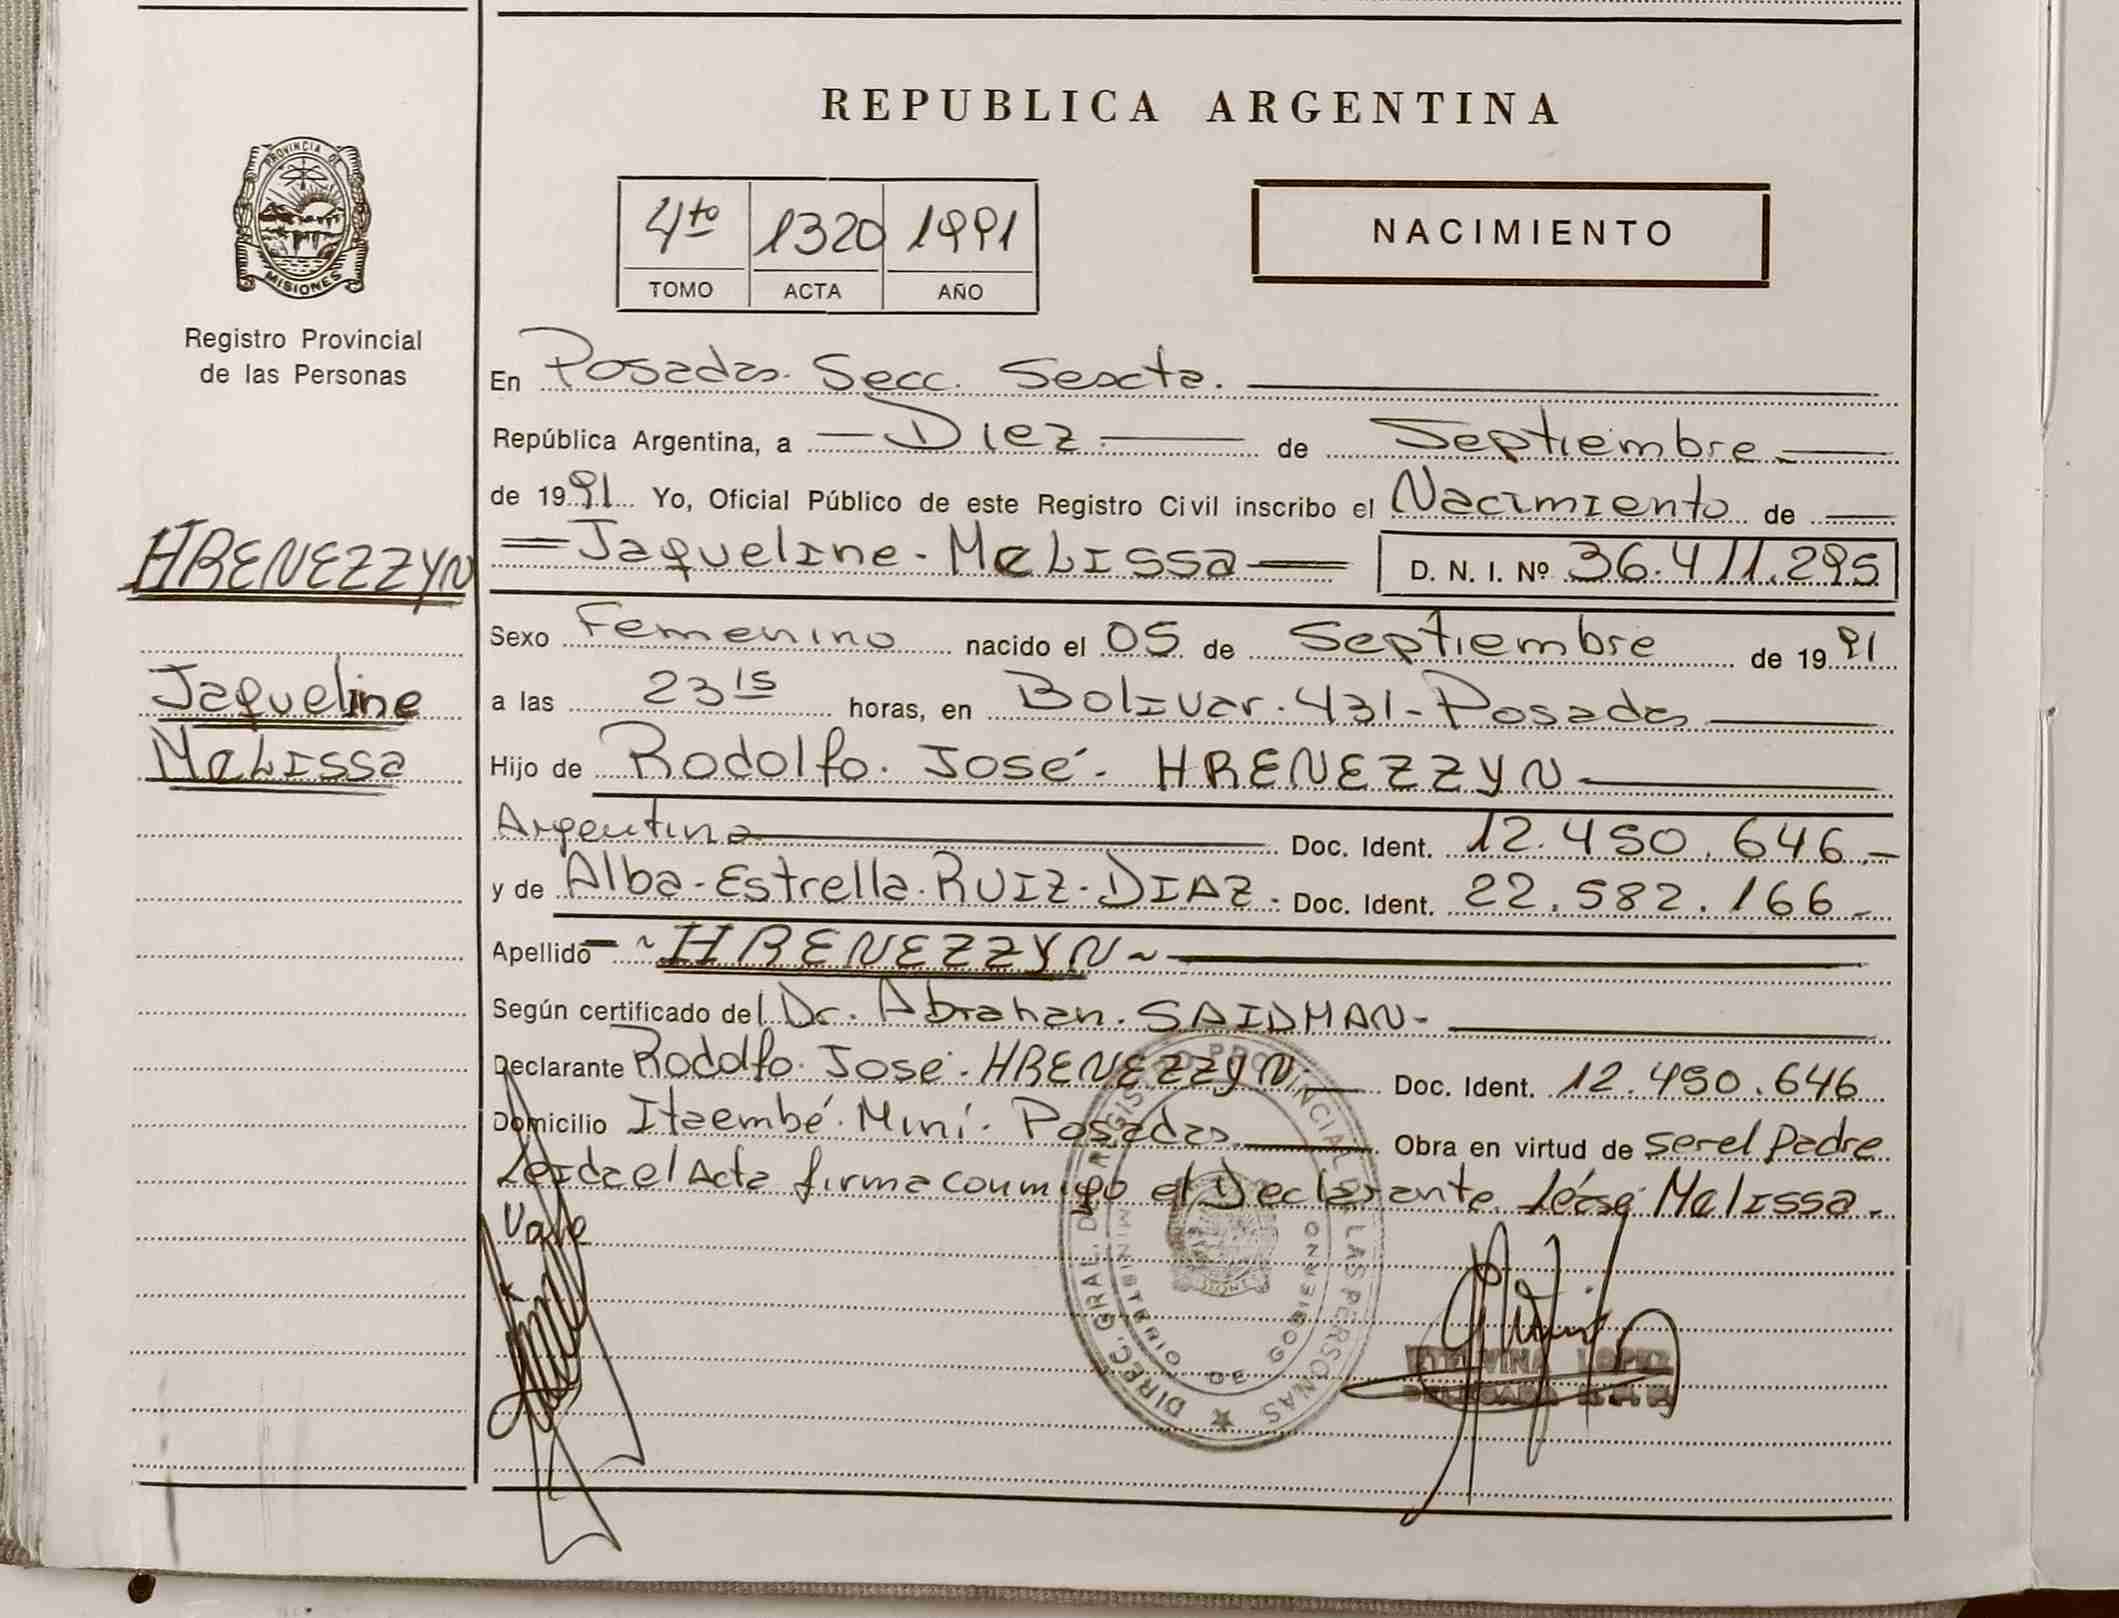 REPUBLICA ARGENTINA
PROVINCIA DE
MISIONES
Registro Provincial
de las Personas
4to 1320 1991
TOMO ACTA AÑO
NACIMIENTO
En Posadas. Secc. Sexta.
República Argentina, a Diez de Septiembre
de 1991 Yo, Oficial Público de este Registro Civil inscribo el Nacimiento de
HRENEZZYN
Jaqueline
Melissa
Jaqueline - Melissa D. N. I. Nº 36.411.295
Sexo Femenino nacido el 05 de Septiembre de 1991
a las 23 15 horas, en Bolivar. 431 - Posadas
Hijo de Rodolfo. José. HRENEZZYN
Argentina Doc. Ident. 12.450.646.-
y de Alba - Estrella. RUIZ - DIAZ. Doc. Ident. 22.582.166.-
Apellido - ~ HRENEZZYN ~
Según certificado del Dr. Abrahan. SAIDMAN -
Declarante Rodolfo. José. HRENEZZYN Doc. Ident. 12.450.646
Domicilio Itaembé. Miní. Posadas Obra en virtud de ser el padre
Leida el Acta firma conmigo el Declarante. Léase: Melissa.
Vale
DIREC. GRAL. DE REGISTRO PROVINCIAL DE LAS PERSONAS
MINISTERIO DE GOBIERNO
LOPEZ